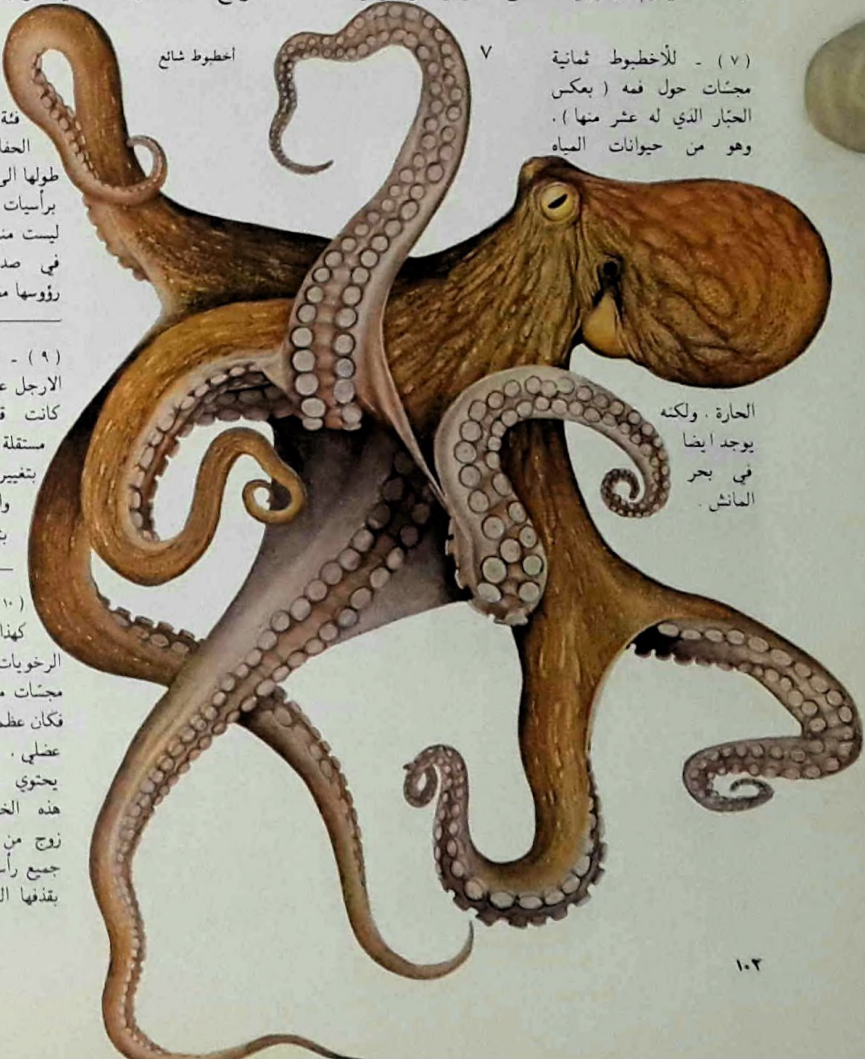 أخطبوط شائع
٧
(٧) - للأخطبوط ثمانية
مجسّات حول فمه ( بعكس
الحبّار الذي له عشر منها ) .
وهو من حيوانات المياه
الحارة . ولكنه
يوجد ايضا
في بحر
المانش .
فئة
طولها الى
برأسيات
ليست
في
رؤوسها
(٩) -
الارجل
كانت
مستقلة
بتغيير
(١٠
كهذا
الرخويات
مجسّات
فكان
عضلي .
يحتوي
هذه
زوج من
جميع
بقذفها
١٠٢